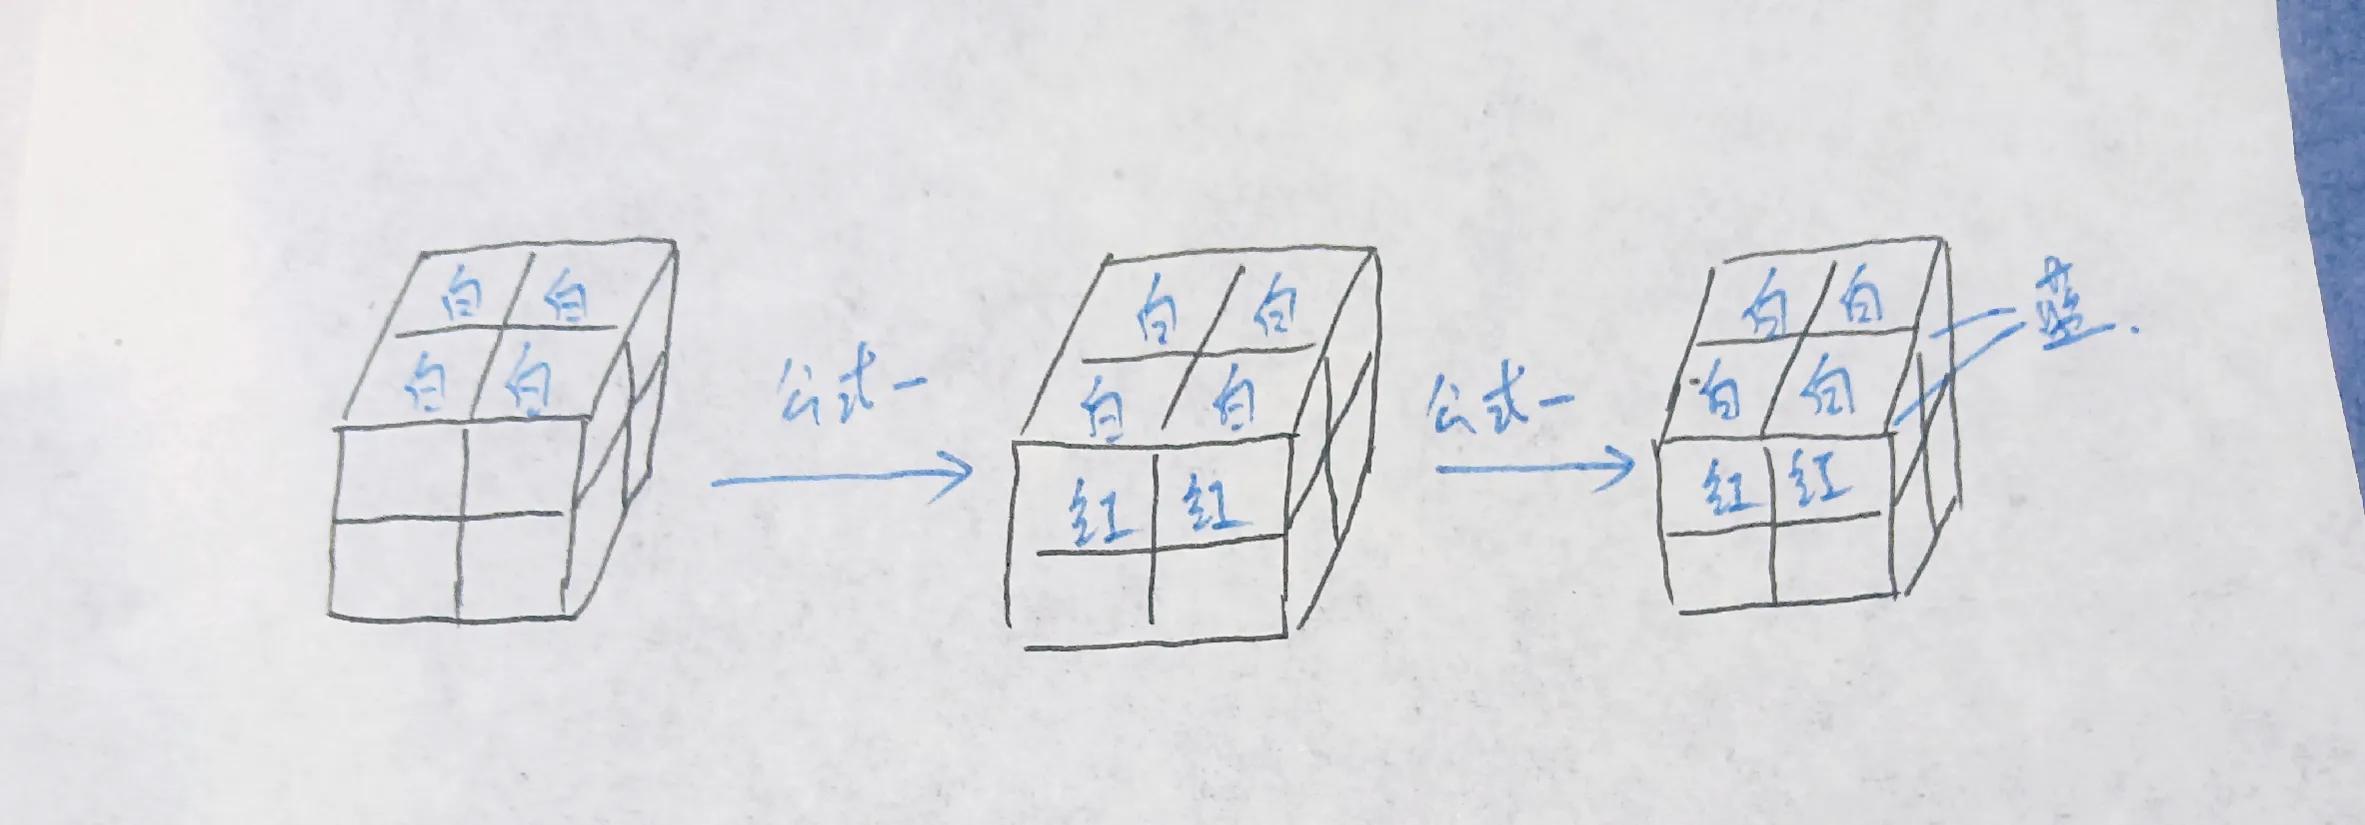 白 白
白 白
公式一
白 白
白 白
红 红
公式一
白 白
白 白
红 红
蓝.